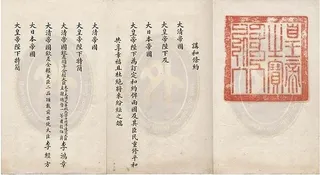 皇帝之寶
講和條約
大清帝國
大皇帝陛下及
大日本帝國
大皇帝陛下為訂定和約俾兩國及其臣民重修平和
共享幸福且杜絕將來紛紜之端
大清帝國
大皇帝陛下特簡
大清帝國欽差頭等全權大臣 李鴻章
大清帝國欽差全權大臣二品頂戴前出使大臣李經方
大日本帝國
大皇帝陛下特簡